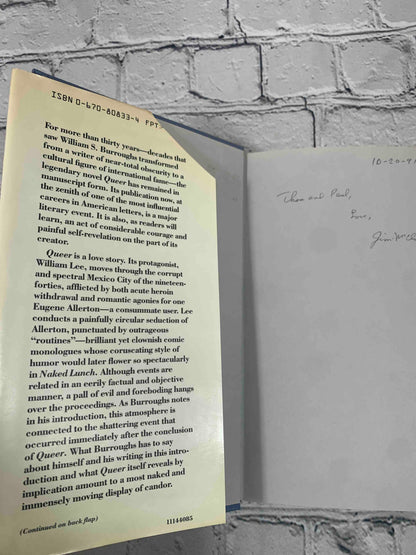 ISBN 0-670-80833-4 FPT
For more than thirty years—decades that
saw William S. Burroughs transformed
from a writer of near-total obscurity to a
cultural figure of international fame—the
legendary novel Queer has remained in
manuscript form. Its publication now, at
the zenith of one of the most influential
careers in American letters, is a major
literary event. It is also, as readers will
learn, an act of considerable courage and
painful self-revelation on the part of its
creator.
Queer is a love story. Its protagonist,
William Lee, moves through the corrupt
and spectral Mexico City of the nineteen-
forties, afflicted by both acute heroin
withdrawal and romantic agonies for one
Eugene Allerton—a consummate user. Lee
conducts a painfully circular seduction of
Allerton, punctuated by outrageous
“routines”—brilliant yet clownish comic
monologues whose coruscating style of
humor would later flower so spectacularly
in Naked Lunch. Although events are
related in an eerily factual and objective
manner, a pall of evil and foreboding hangs
over the proceedings. As Burroughs notes
in his introduction, this atmosphere is
connected to the shattering event that
occurred immediately after the conclusion
of Queer. What Burroughs has to say
about himself and his writing in this intro-
duction and what Queer itself reveals by
implication amount to a most naked and
immensely moving display of candor.
(Continued on back flap) 11144085
10-20-9
and Paul,
Love,
Jim